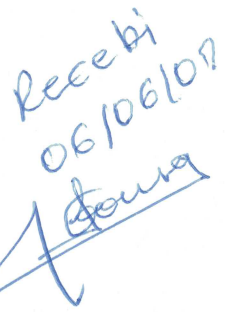 Recebi
06/06/07